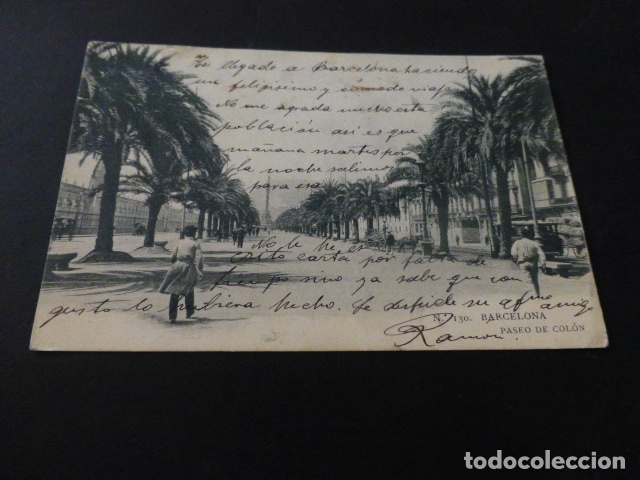 He llegado a Barcelona haciendo
un felicisimo y cómodo viaje
No me agrada mucho esta
población así es que
mañana martes por
la noche salimos
para esa
No le he es-
crito carta por falta de
tiempo sino ya sabe que con
gusto lo hubiera hecho. Se despide su afmo amigo
Ramón.
Nº 130. BARCELONA
PASEO DE COLÓN
todocoleccion.net